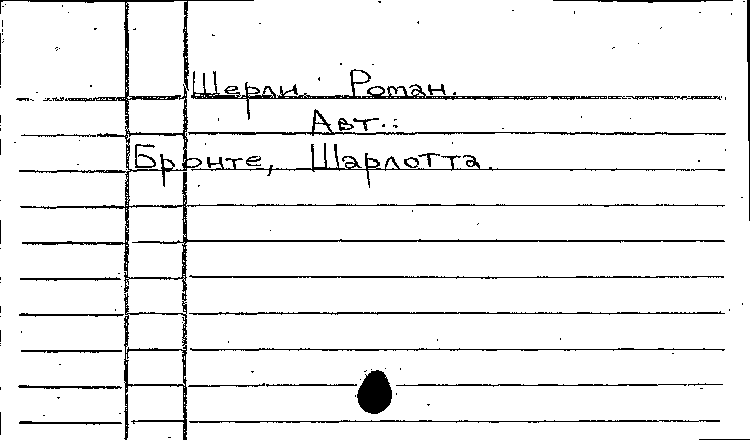 Шерли. Роман.
Авт.:
Бронте, Шарлотта.